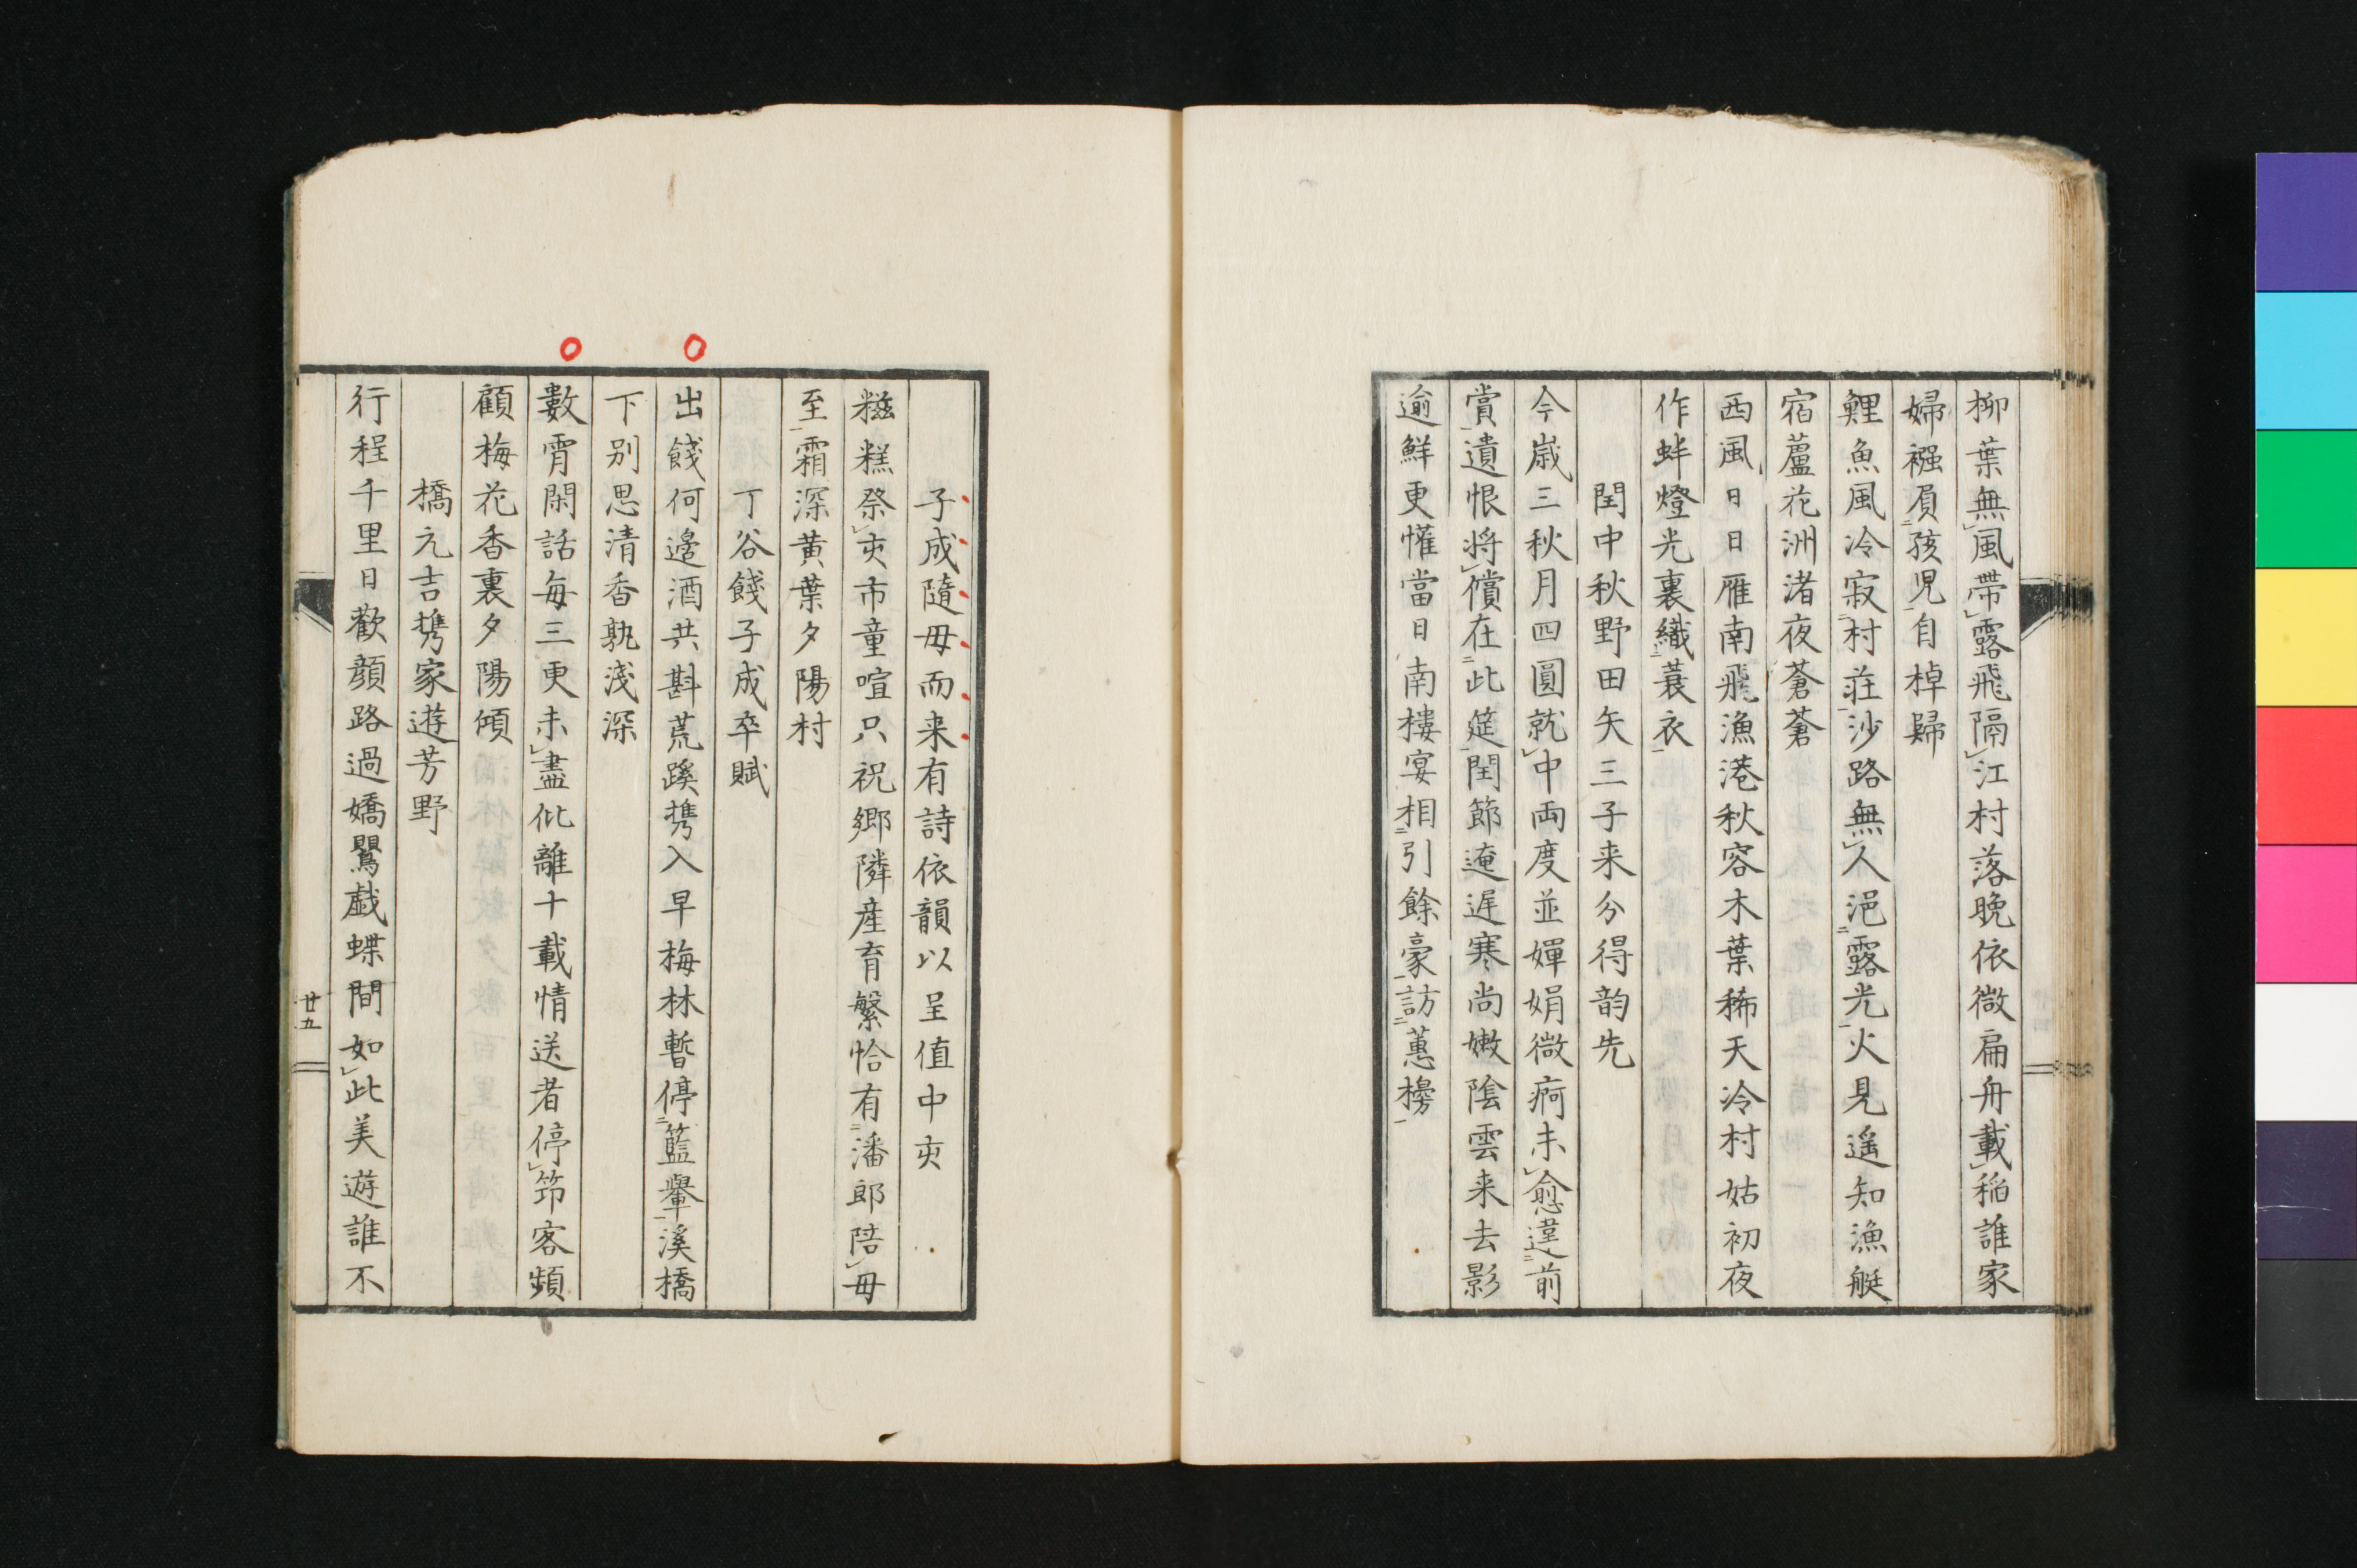 柳葉無風帶露飛隔江村落晩依微扁舟載稲誰家
婦襁眉孩児自棹歸
鯉魚風冷寂村荘沙路無人浥露光火見遥知漁艇
宿蘆花洲渚夜蒼蒼
西風日日雁南飛漁港秋容木葉稀天冷村姑初夜
作蚌燈光裏織蓑衣
閏中秋野田矢三子来分得韵先
今歳三秋月四圓就中両度並嬋娟微痾未愈違前
賞遺恨将償在此筵閏節遲遅寒尚嫩陰雲来去影
逾鮮更懽當日南樓宴相引餘豪訪蕙櫋
子成隨母而来有詩依韻以呈值中亥
糍糕祭亥市童喧只祝郷隣産育繁恰有潘郎陪母
至霜深黄葉夕陽村
丁谷餞子成卒賦
出餞何邊酒共斟荒蹊携入早梅林暫停籃轝溪橋
下別思清香孰淺深
數霄閑話毎三更未盡仳離十載情送者停笻客頻
顧梅花香裏夕陽傾
橋元吉携家遊芳野
行程千里日歡顔路過嬌鸎戯蝶間如此美遊誰不
廿五